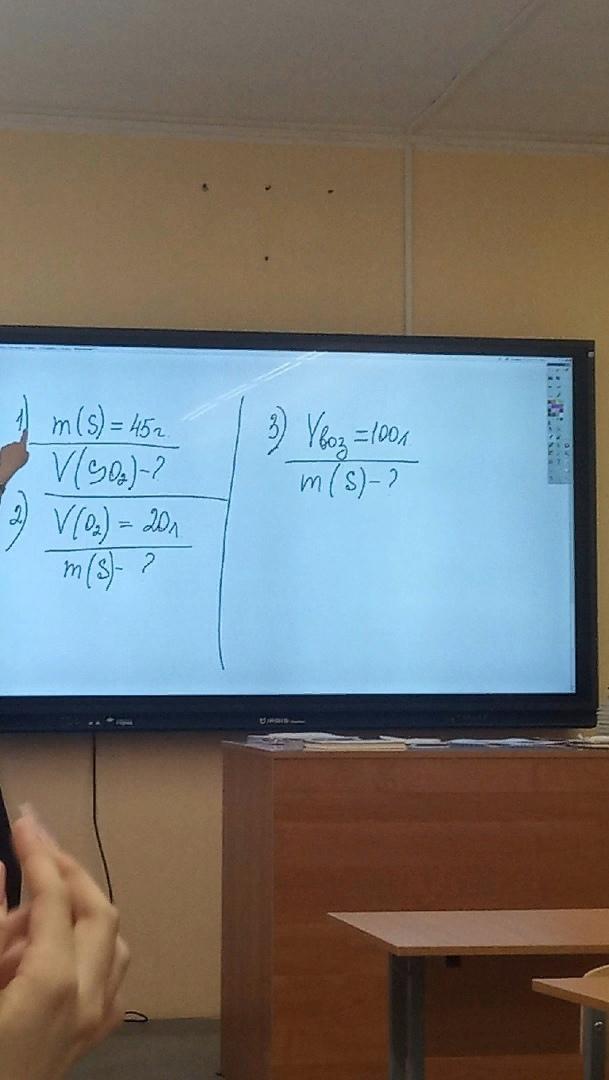 1) m(S) = 45г.
V(SO₂) - ?
2) V(O₂) = 20л
m(S) - ?
3) Vвоз = 100л
m(S) - ?
IRBIS